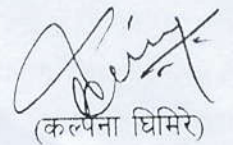 (कल्पना घिमिरे)